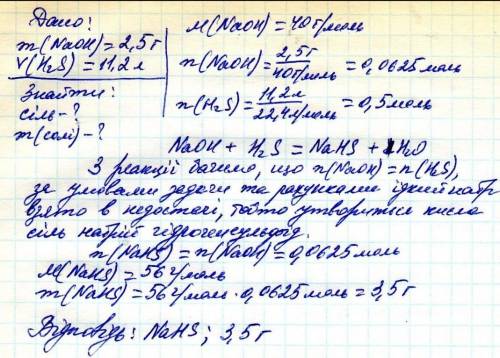 Дано:
m(NaOH) = 2,5 г
V(H₂S) = 11,2 л
Знайти:
сіль - ?
m(солі) - ?
M(NaOH) = 40 г/моль
n(NaOH) = 2,5 г / 40 г/моль = 0,0625 моль
n(H₂S) = 11,2 л / 22,4 л/моль = 0,5 моль
NaOH + H₂S = NaHS + H₂O
З реакції бачимо, що n(NaOH) = n(H₂S),
за умовами задачи та рахунками їдкий натр
взято в недостачі, тобто утвориться кисла
сіль натрій гідрогенсульфід.
n(NaHS) = n(NaOH) = 0,0625 моль
M(NaHS) = 56 г/моль
m(NaHS) = 56 г/моль · 0,0625 моль = 3,5 г
Відповідь: NaHS; 3,5 г